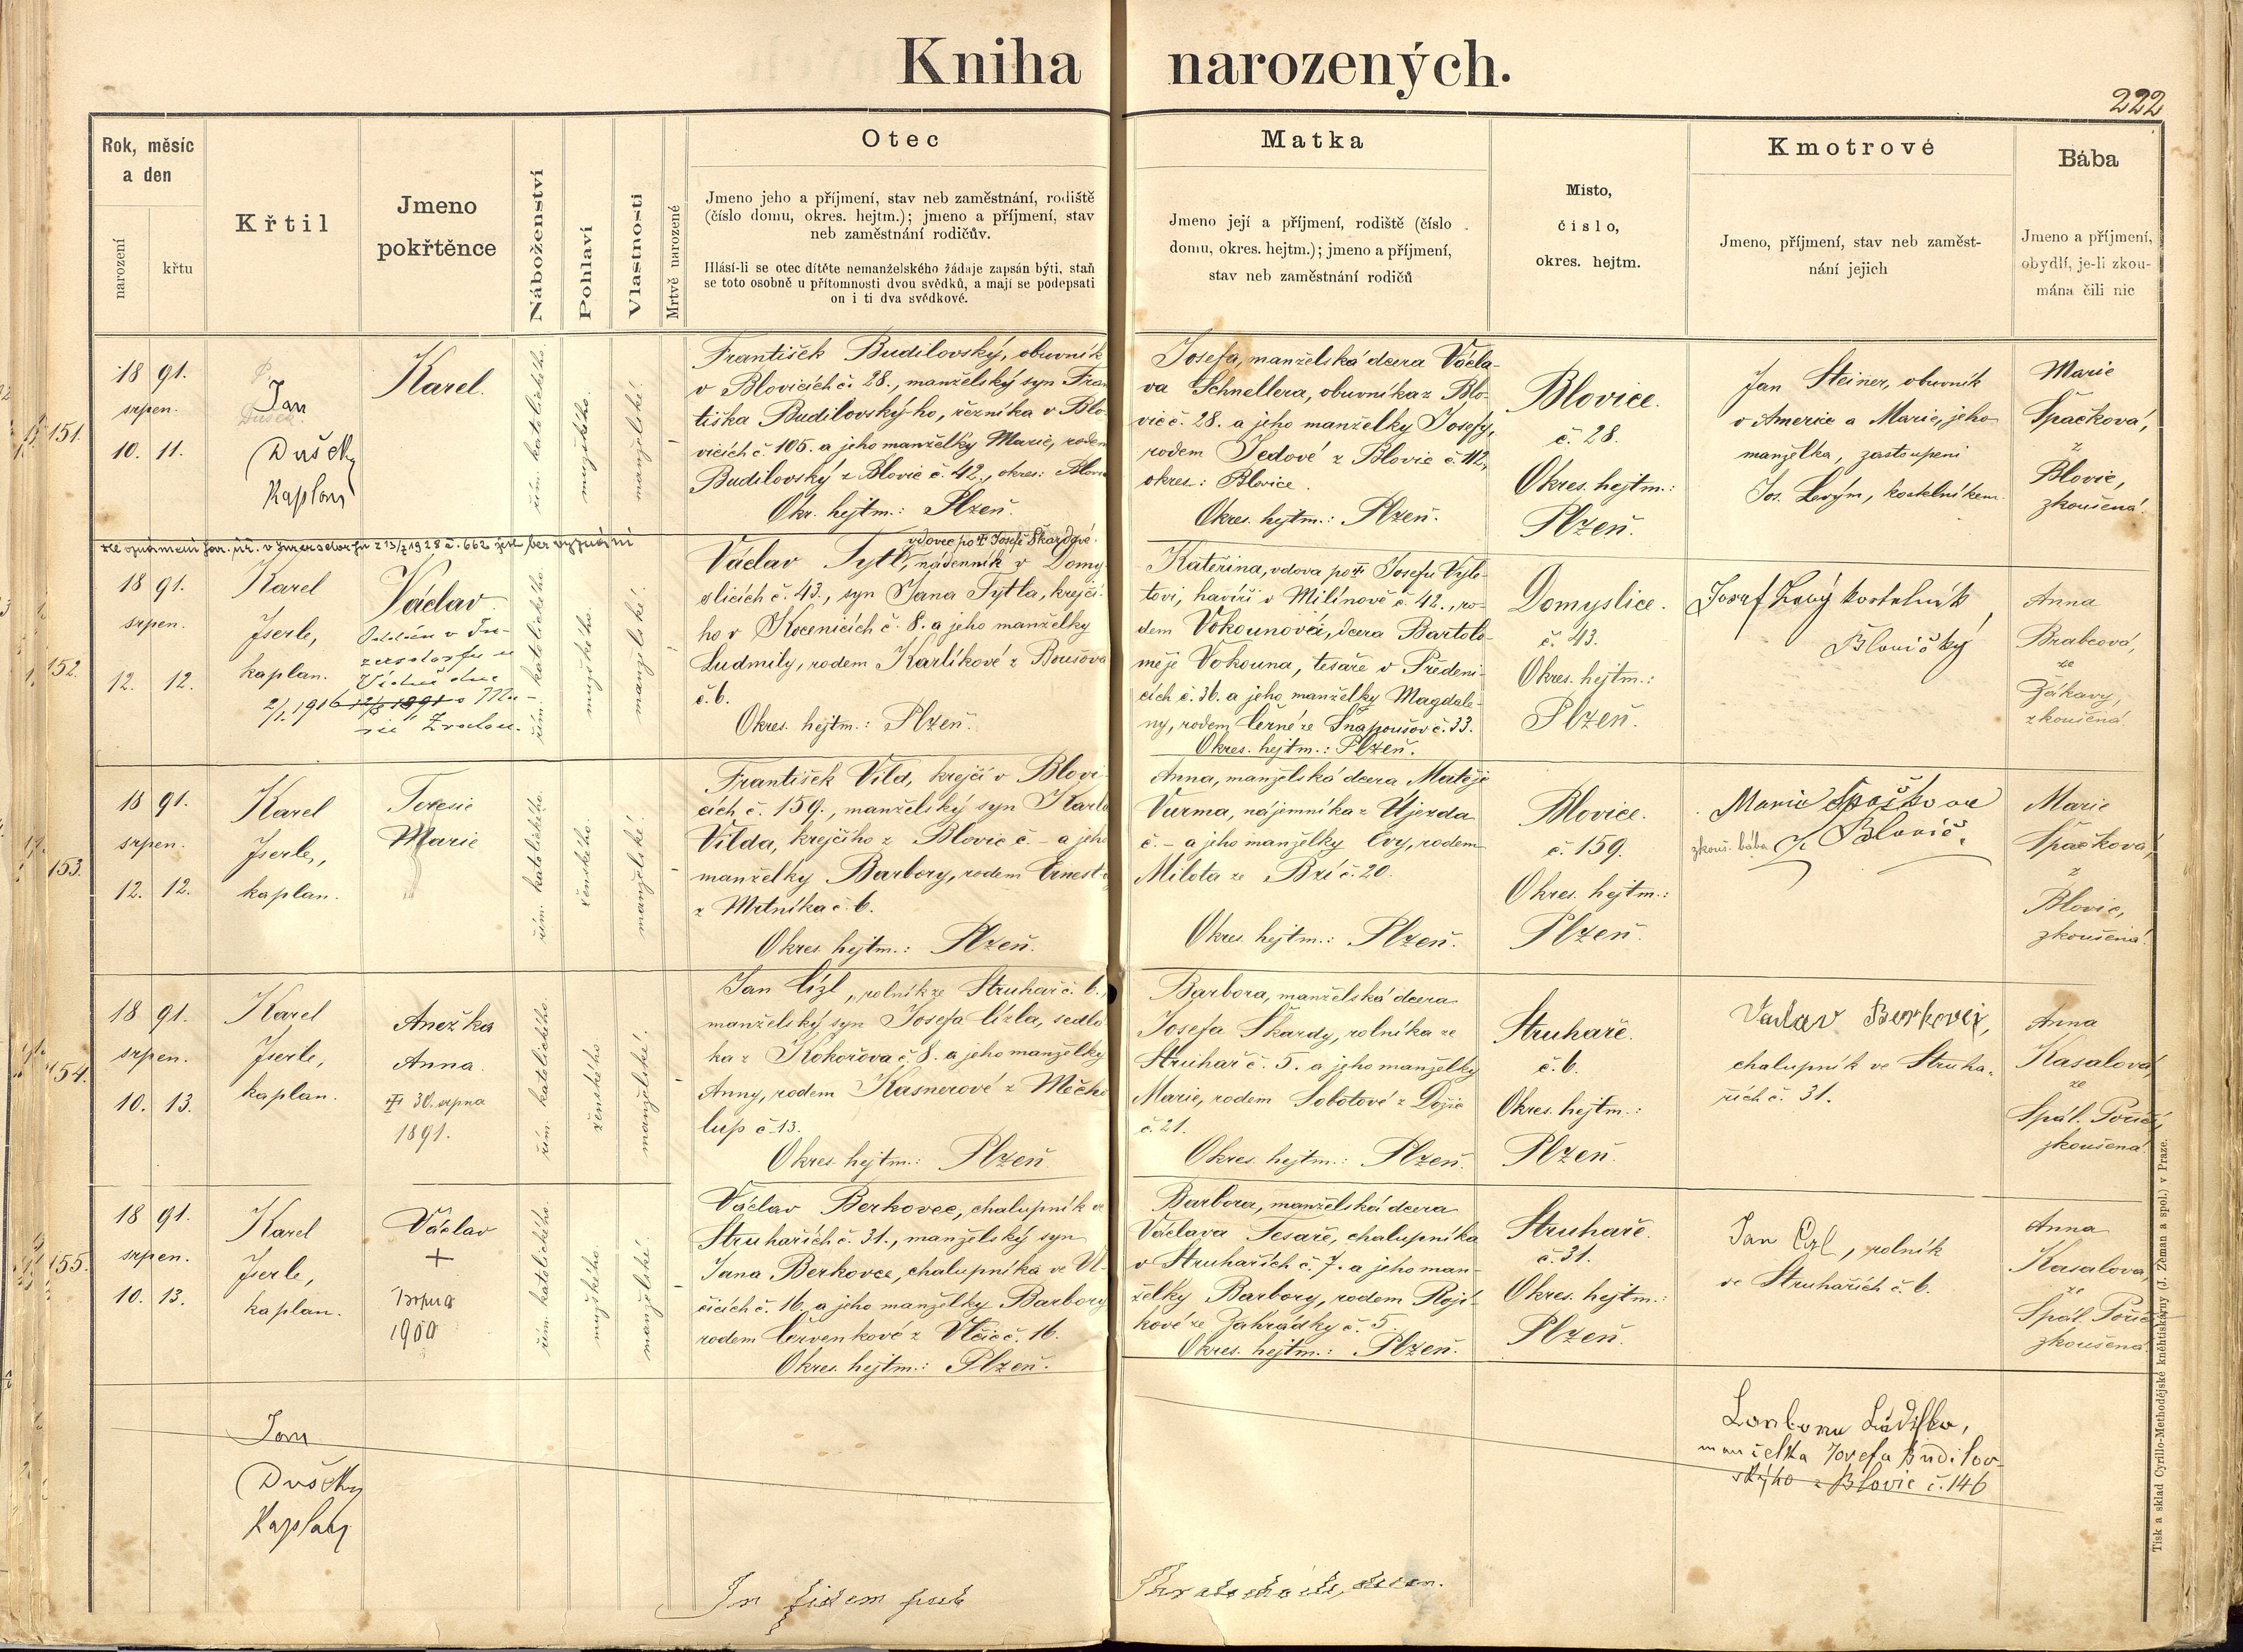 Kniha narozených.
222
Rok, měsíc
a den
narození
křtu
Křtil
Jmeno
pokřtěnce
Náboženství
Pohlaví
Vlastnosti
Mrtvě narozené
Otec
Jmeno jeho a příjmení, stav neb zaměstnání, rodiště
(číslo domu, okres. hejtm.); jmeno a příjmení, stav
neb zaměstnání rodičův.
Hlásí-li se otec dítěte nemanželského žádaje zapsán býti, staň
se toto osobně u přítomnosti dvou svědků, a mají se podepsati
on i ti dva svědkové.
Matka
Jmeno její a příjmení, rodiště (číslo
domu, okres. hejtm.); jmeno a příjmení,
stav neb zaměstnání rodičů
Místo,
číslo,
okres. hejtm.
Kmotrové
Jmeno, příjmení, stav neb zaměst-
nání jejich
Bába
Jmeno a příjmení,
obydlí, je-li zkou-
mána čili nic
151.
18 91.
srpen.
10. 11.
Jan
Dušek
Kaplan
Karel.
řím. katolického.
mužského.
manželské.
František Budilovský, obuvník
v Blovicích č. 28., manželský syn Fran
tiška Budilovského, řezníka v Blo-
vicích č. 105. a jeho manželky Marie, rodem
Budilovský z Blovic č. 42., okres: Blovice
Okr. hejtm.: Plzeň.
Josefa, manželská dcera Václa-
va Schnellera, obuvníka z Blo-
vic č. 28. a jeho manželky Josefy,
rodem Jedové z Blovic č. 112,
okres: Blovice.
Okres. hejtm.: Plzeň.
Blovice.
č. 28.
Okres. hejtm.:
Plzeň.
Jan Steiner, obuvník
v Americe a Marie, jeho
manželka, zastoupeni
Jos. Levým, kostelníkem.
Marie
Špačková,
z
Blovic,
zkoušená.
dle oznámení far. úř. v Inzersdorfu z 13/7 1928 č. 662 jest bez vyznání
152.
18 91.
srpen.
12. 12.
Karel
Jserle,
kaplan.
Václav.
Oddán v In-
zersdorfu u
Vídně dne
2/1. 1916
řím. katolického.
mužského.
manželské.
vdovec po Josefě Škardové.
Václav Tytl, nádenník v Domy-
slicích č. 43., syn Jana Tytla, krejčí-
ho v Kocenicích č. 8. a jeho manželky
Ludmily, rodem Karlíkové z Bousova
č. 6.
Okres. hejtm.: Plzeň.
Kateřina, vdova po Josefu Vyle-
tovi, havíři v Milínově č. 42., ro-
dem Vokounová, dcera Bartolo-
měje Vokouna, tesaře v Předeni-
cích č. 36. a jeho manželky Magdale-
ny, rodem Černé ze Šnapoušov č. 33.
Okres. hejtm.: Plzeň.
Domyslice.
č. 43.
Okres. hejtm.:
Plzeň.
Josef Levý kostelník
Blovický
Anna
Brabcová,
ze
Žákavy,
zkoušená.
153.
18 91.
srpen.
12. 12.
Karel
Jserle,
kaplan.
Terezie
Marie
řím. katolického.
ženského.
manželské.
František Vild, krejčí v Blovi-
cích č. 159., manželský syn Karla
Vilda, krejčího z Blovic č. – a jeho
manželky Barbory, rodem Ernest
z Mrtníka č. 6.
Okres. hejtm.: Plzeň.
Anna, manželská dcera Matěje
Vurma, nájemníka z Újezda
č. – a jeho manželky Evy, rodem
Milota ze Bzí č. 20.
Okres. hejtm.: Plzeň.
Blovice.
č. 159.
Okres. hejtm.:
Plzeň.
Marie Špačkova
zkouš. bába z Blovic.
Marie
Špačková,
z
Blovic,
zkoušená.
154.
18 91.
srpen.
10. 13.
Karel
Jserle,
kaplan.
Anežka
Anna.
30. srpna
1891.
řím. katolického.
ženského
manželské.
Jan Cízl, rolník ze Struhař č. 6.,
manželský syn Josefa Cízla, sedlá-
ka z Kokořova č. 8. a jeho manželky
Anny, rodem Kasnerové z Měcho
lup č. 13.
Okres. hejtm.: Plzeň.
Barbora, manželská dcera
Josefa Škardy, rolníka ze
Struhař č. 5. a jeho manželky
Marie, rodem Sobotové z Dožic
č. 21.
Okres. hejtm.: Plzeň.
Struhaře.
č. 6.
Okres. hejtm.:
Plzeň.
Václav Berkovec,
chalupník ve Struha-
řích č. 31.
Anna
Kasalová,
ze
Spál. Poříčí,
zkoušená.
155.
18 91.
srpen.
10. 13.
Karel
Jserle,
kaplan.
Václav
+
srpna
1900
řím. katolického.
mužského.
manželské.
Václav Berkovec, chalupník ve
Struhařích č. 31., manželský syn
Jana Berkovce, chalupníka ve Vl-
čicích č. 16. a jeho manželky Barbory
rodem Červenkové z Vlčic č. 16.
Okres. hejtm.: Plzeň.
Barbora, manželská dcera
Václava Tesaře, chalupníka
v Struhařích č. 7. a jeho man-
želky Barbory, rodem Rojí-
kové ze Zahrádky č. 5.
Okres. hejtm.: Plzeň.
Struhaře.
č. 31.
Okres. hejtm.:
Plzeň.
Jan Cízl, rolník
ve Struhařích č. 6.
Anna
Kasalová,
ze
Spál. Poříčí
zkoušená.
Jan
Dušek
Kaplan
manželka Josefa Budilov-
ského z Blovic č. 146
In fidem
Tisk a sklad Cyrillo-Methodějské kněhtiskárny (J. Zeman a spol.) v Praze.